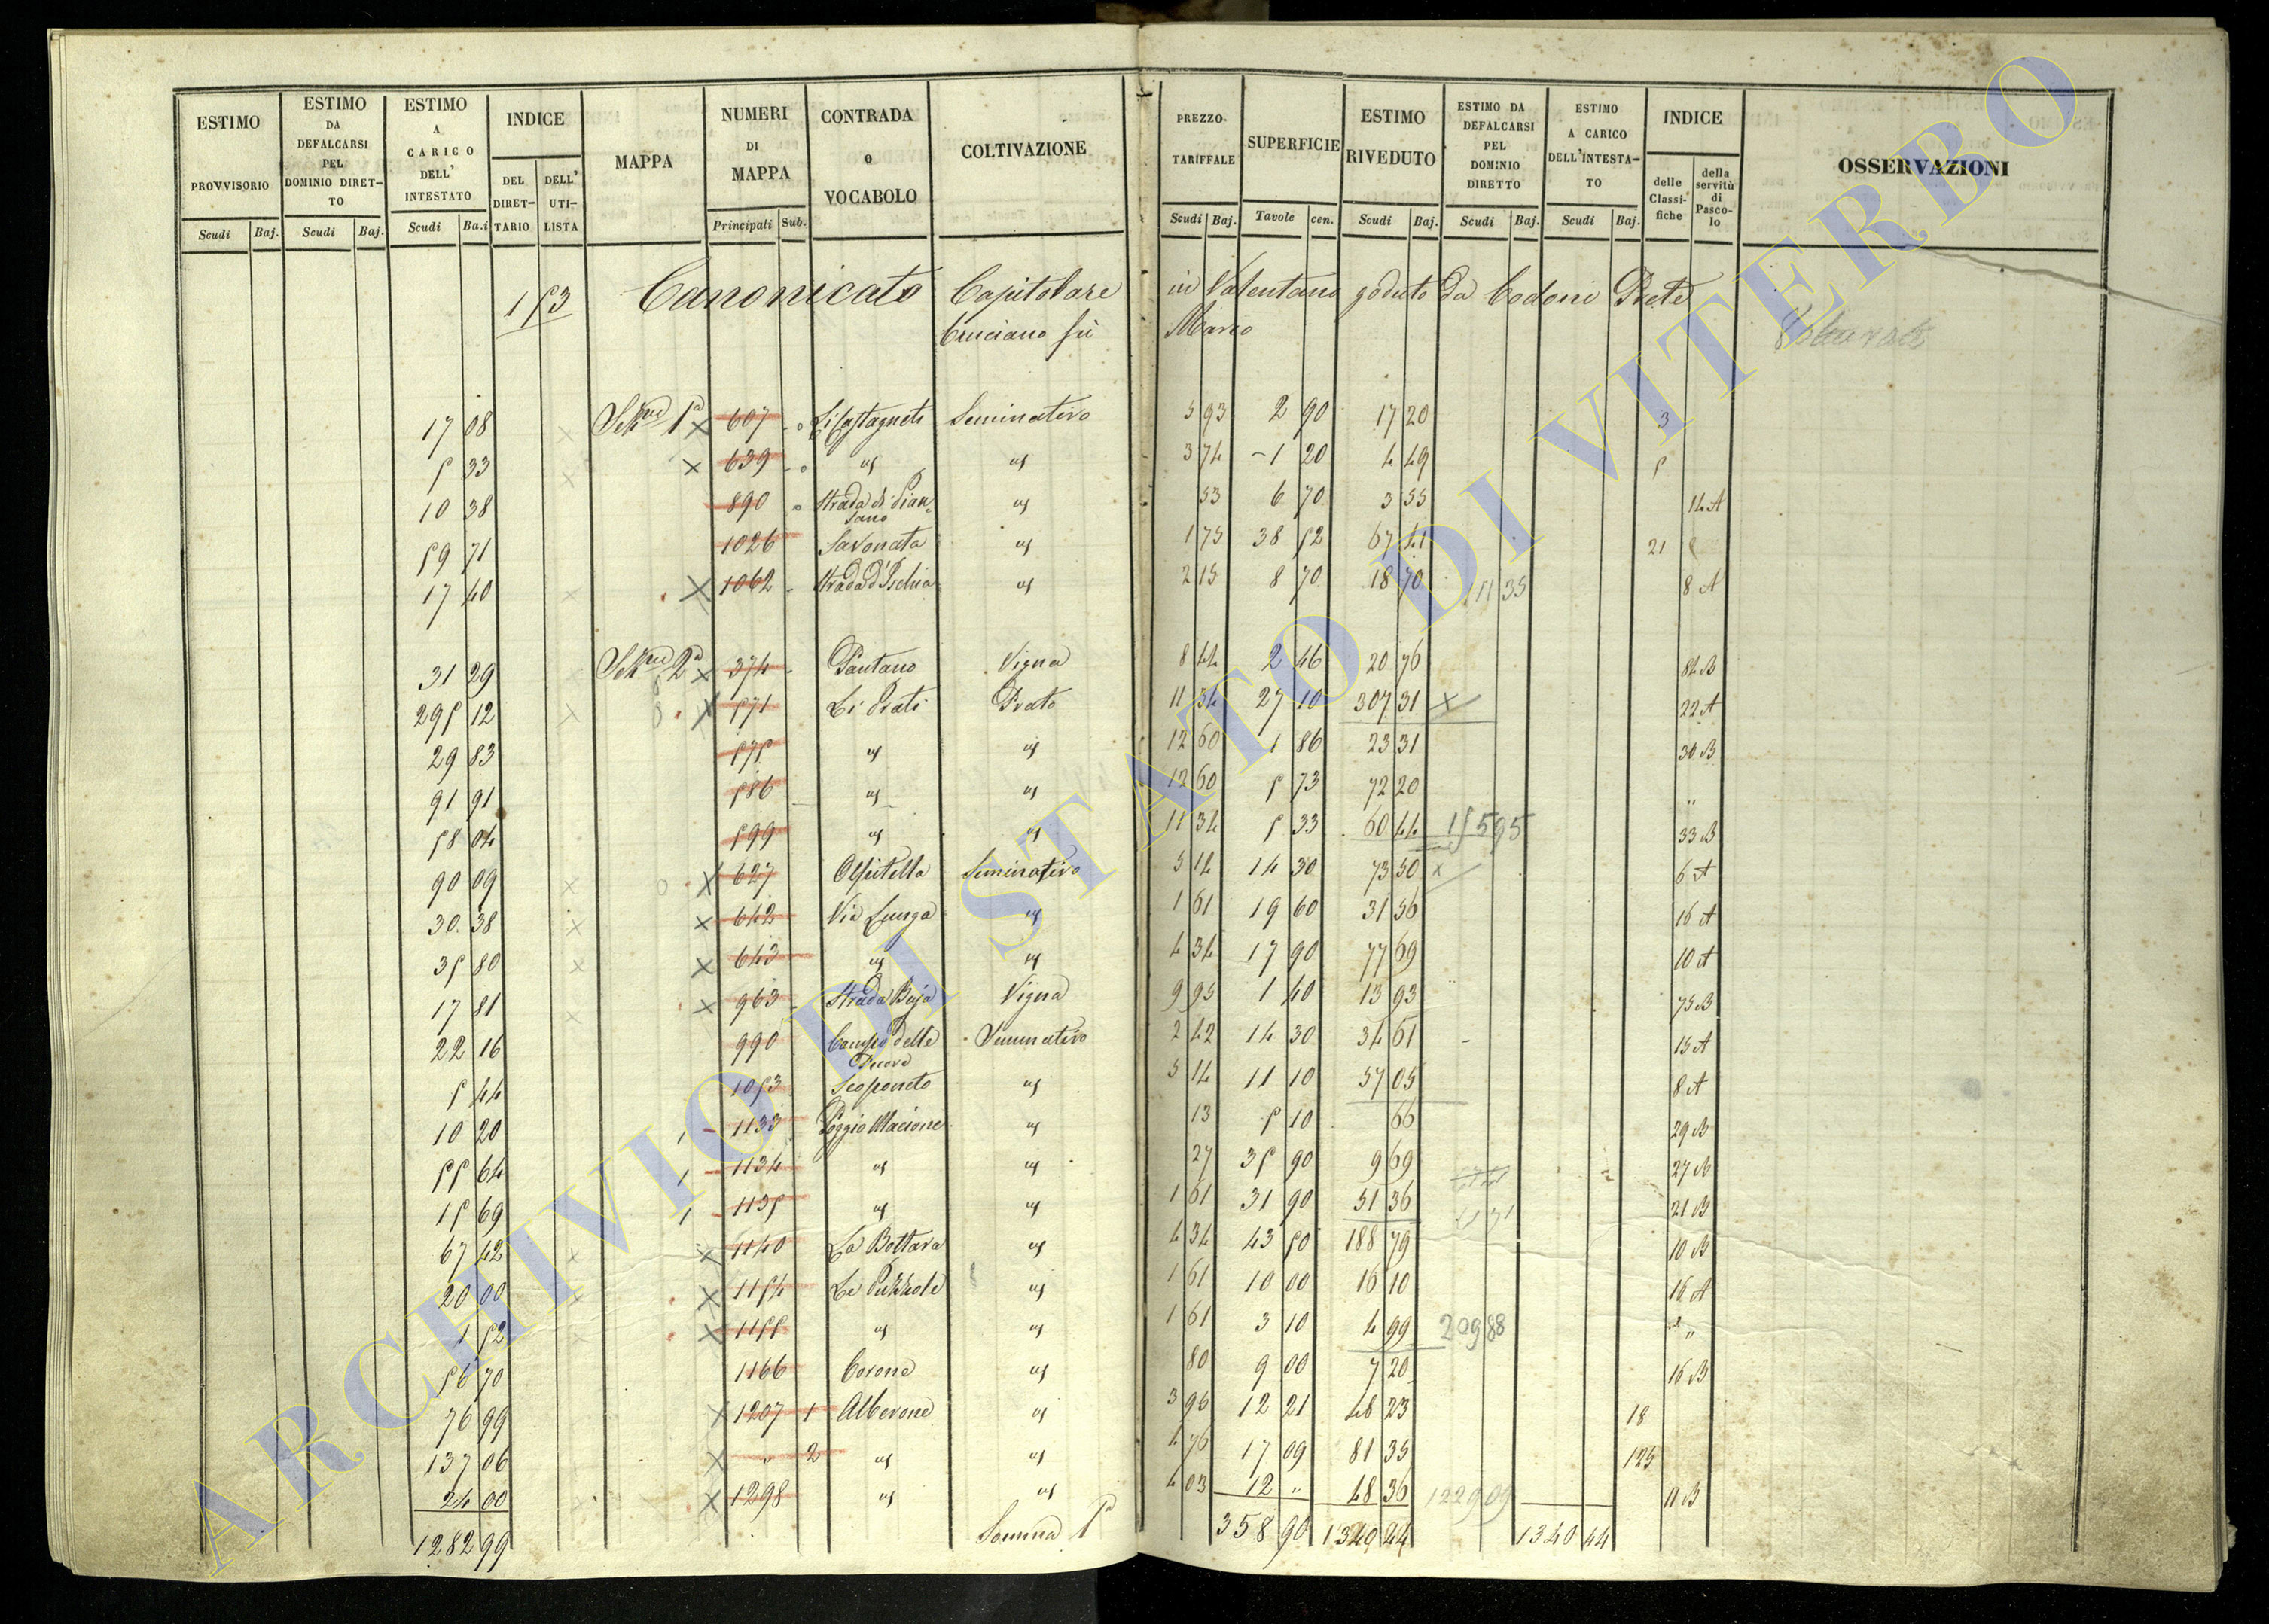 ESTIMO PROVVISORIO Scudi Baj.
ESTIMO DA DEFALCARSI PEL DOMINIO DIRET-TO Scudi Baj.
ESTIMO A CARICO DELL' INTESTATO Scudi Ba.i
INDICE DEL DIRET-TARIO DELL' UTI-LISTA
MAPPA
NUMERI DI MAPPA Principali Sub.
CONTRADA o VOCABOLO
COLTIVAZIONE
PREZZO- TARIFFALE Scudi Baj.
SUPERFICIE Tavole cen.
ESTIMO RIVEDUTO Scudi Baj.
ESTIMO DA DEFALCARSI PEL DOMINIO DIRETTO Scudi Baj.
ESTIMO A CARICO DELL'INTESTA-TO Scudi Baj.
INDICE delle Classi-fiche della servitù di Pasco-lo
OSSERVAZIONI
153 Canonicato Capitolare in Valentano goduto da Codoni Prete
Luciano fù Marco
17 08 Sez 1a X 607 Li Castagneti Seminativo 5 93 2 90 17 20 3
5 33 X 639 us us 3 74 1 20 4 49 5
10 38 890 Strada di Pian-sano us 53 6 70 3 55 14 A
59 71 1026 Savonata us 1 75 38 52 67 41 21
17 40 X 1062 Strada d'Ischia us 2 15 8 70 18 70 111 35 8 A
31 29 Sez 2a X 374 Pantano Vigna 8 44 2 46 20 76 84 B
295 12 X 571 Li Prati Prato 11 34 27 10 307 31 X 22 A
29 83 575 us us 12 60 1 86 23 31 30 B
91 91 586 us us 12 60 5 73 72 20 "
58 04 599 us us 11 34 5 33 60 44 155 95 33 B
90 09 X 627 Ospitella Seminativo 5 14 14 30 73 50 x 6 A
30 38 X 642 Via Lunga us 1 61 19 60 31 56 16 A
35 80 X 643 us us 4 34 17 90 77 69 10 A
17 81 X 963 Strada Buja Vigna 9 95 1 40 13 93 75 B
22 16 990 Campo delle Piccove Seminativo 2 42 14 30 34 61 15 A
5 44 1053 Scoponeto us 5 14 11 10 57 05 8 A
10 20 1 1133 Poggio Macione us 13 5 10 66 29 B
55 64 1 1134 us us 27 35 90 9 69 27 B
15 69 1 1135 us us 1 61 31 90 51 36 21 B
67 42 X 1140 La Bottara us 4 34 43 50 188 79 10 B
20 00 X 1154 Le Puzzole us 1 61 10 00 16 10 16 A
1 52 X 1155 us us 1 61 3 10 4 99 209 88 "
56 70 1166 Corone us 80 9 00 7 20 16 B
76 99 X 1207 1 Alberone us 3 96 12 21 48 23 18
137 06 X " 2 us us 4 76 17 09 81 35 125
24 00 X 1298 us us 4 03 12 " 48 36 1229 09 11 B
1282 99 Somma 1a 358 90 1340 44 1340 44
ARCHIVIO DI STATO DI VITERBO